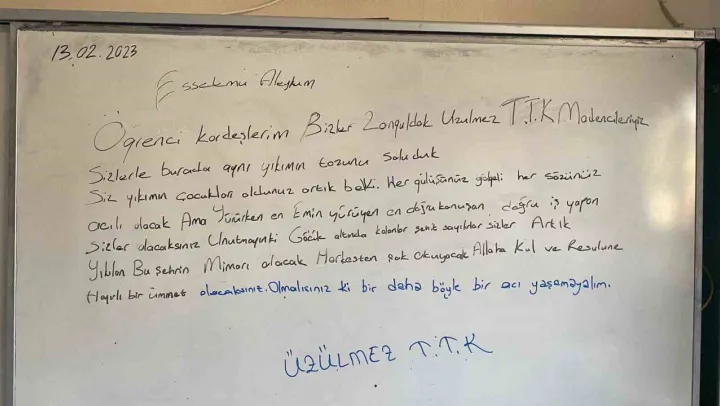 13.02.2023
Esselamu Aleykum
Öğrenci kardeşlerim Bizler Zonguldak Üzülmez T.T.K Madencileriyiz
Sizlerle burada aynı yıkımın tozunu soluduk
Siz yıkımın çocukları oldunuz artık belki. Her gülüşünüz gölgeli her sözünüz
acılı olacak Ama Yürürken en Emin yürüyen en doğru konuşan doğru iş yapan
Sizler olacaksınız Unutmayınki Göçük altında kalanlar şehit sayılırlar sizler Artık
Yıkılan Bu Şehrin Mimarı olacak Herkesten çok okuyacak Allaha Kul ve Resulune
Hayırlı bir ümmet olacaksınız. Olmalısınız ki bir daha böyle bir acı yaşamayalım.
ÜZÜLMEZ T.T.K